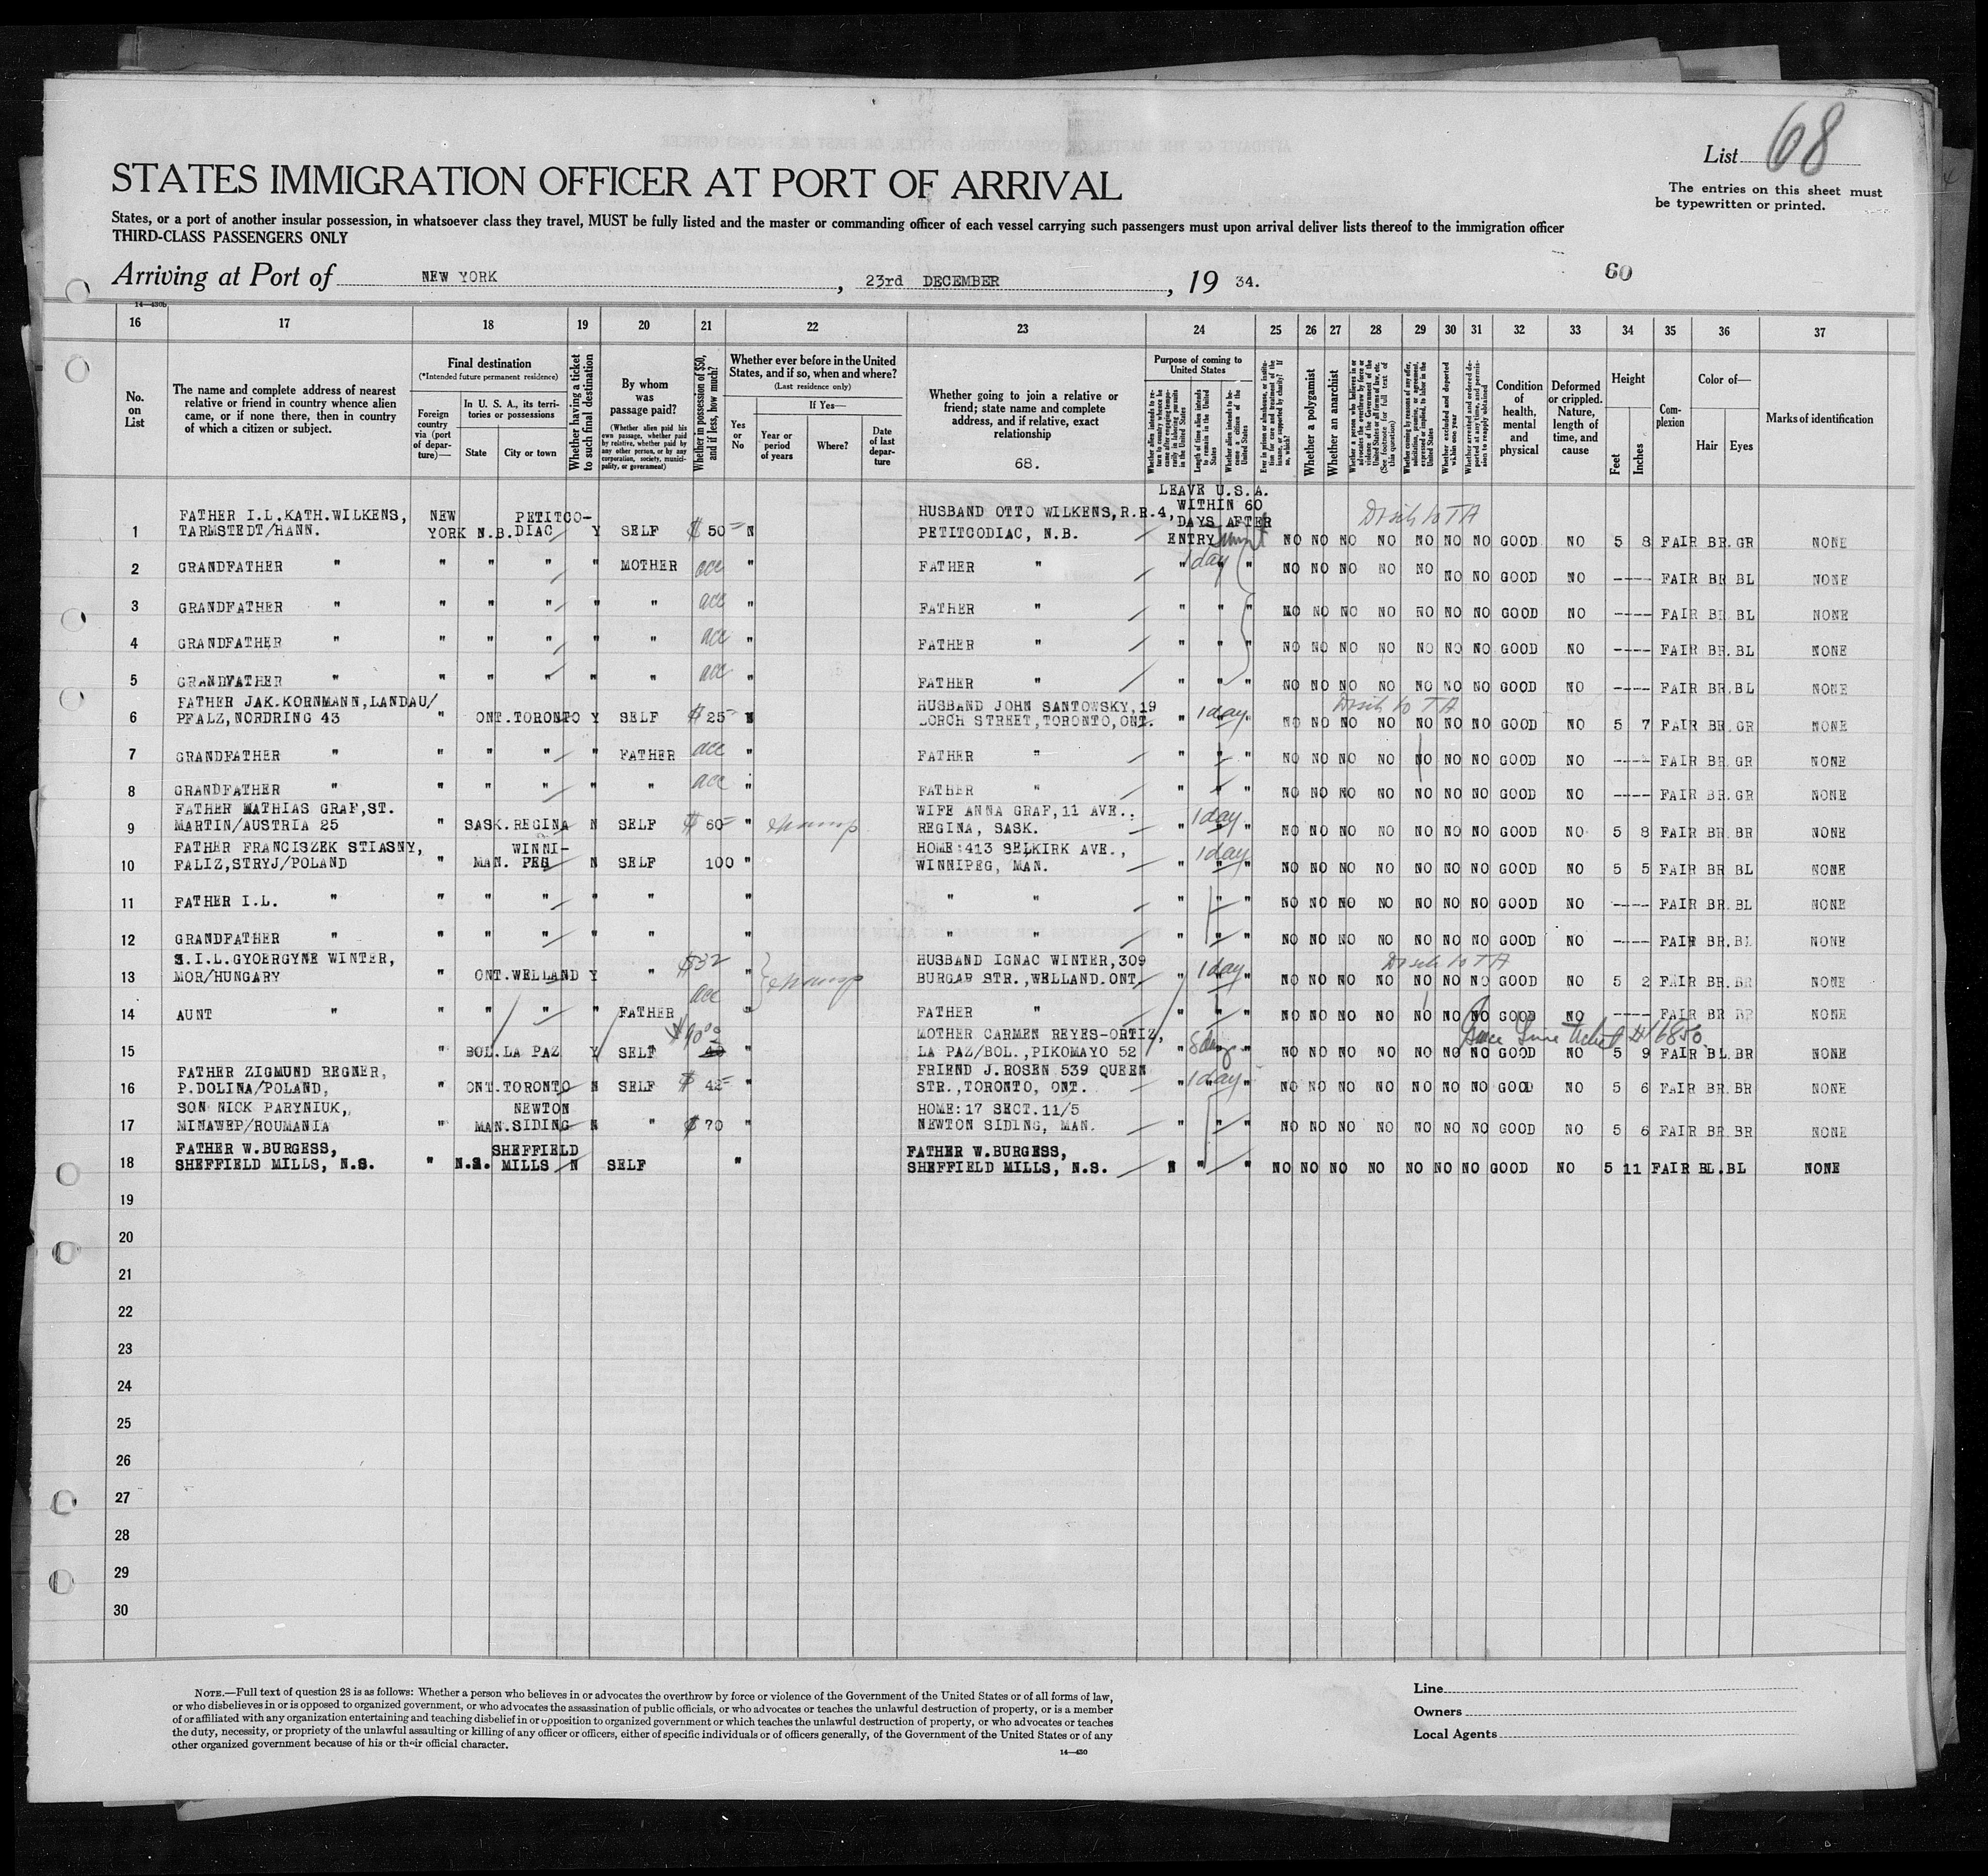 List 68
STATES IMMIGRATION OFFICER AT PORT OF ARRIVAL
The entries on this sheet must
be typewritten or printed.
States, or a port of another insular possession, in whatsoever class they travel, MUST be fully listed and the master or commanding officer of each vessel carrying such passengers must upon arrival deliver lists thereof to the immigration officer
THIRD-CLASS PASSENGERS ONLY
Arriving at Port of NEW YORK, 23rd DECEMBER, 19 34.
60
14—430b
16 17 18 19 20 21 22 23 24 25 26 27 28 29 30 31 32 33 34 35 36 37
No. on List
The name and complete address of nearest relative or friend in country whence alien came, or if none there, then in country of which a citizen or subject.
Final destination
(*Intended future permanent residence)
Foreign country via (port of departure)—
In U. S. A., its territories or possessions
State
City or town
Whether having a ticket to such final destination
By whom was passage paid?
(Whether alien paid his own passage, whether paid by relative, whether paid by any other person, or by any corporation, society, municipality, or government)
Whether in possession of $50, and if less, how much?
Whether ever before in the United States, and if so, when and where?
(Last residence only)
Yes or No
If Yes—
Year or period of years
Where?
Date of last departure
Whether going to join a relative or friend; state name and complete address, and if relative, exact relationship
68.
Purpose of coming to United States
Length of time alien intends to remain in the United States
Whether alien intends to become a citizen of the United States
Whether a polygamist
Whether an anarchist
Condition of health, mental and physical
Deformed or crippled. Nature, length of time, and cause
Height
Feet
Inches
Complexion
Color of—
Hair
Eyes
Marks of identification
LEAVE U.S.A.
WITHIN 60
DAYS AFTER
ENTRY
1 FATHER I.L.KATH.WILKENS, TARMSTEDT/HANN. NEW YORK N.B. PETITCO-DIAC Y SELF $ 50 N HUSBAND OTTO WILKENS,R.R.4, PETITCODIAC, N.B. Disch to TA NO NO NO NO NO NO NO GOOD NO 5 8 FAIR BR.GR NONE
2 GRANDFATHER " " " " " MOTHER acc " FATHER " " 1 day " NO NO NO NO NO NO NO GOOD NO ---- FAIR BR BL NONE
3 GRANDFATHER " " " " " " acc " FATHER " " " " NO NO NO NO NO NO NO GOOD NO ---- FAIR BR.BL NONE
4 GRANDFATHER " " " " " " acc " FATHER " " " " NO NO NO NO NO NO NO GOOD NO ---- FAIR BR.BL NONE
5 GRANDFATHER " " " " " " acc " FATHER " " " " NO NO NO NO NO NO NO GOOD NO ---- FAIR BR.BL NONE
6 FATHER JAK.KORNMANN,LANDAU/ PFALZ,NORDRING 43 " ONT.TORONTO Y SELF $ 25 N HUSBAND JOHN SANTOWSKY,19 LORCH STREET,TORONTO,ONT. " 1 day " Disch to TA NO NO NO NO NO NO NO GOOD NO 5 7 FAIR BR.GR NONE
7 GRANDFATHER " " " " " FATHER acc " FATHER " " " " NO NO NO NO NO NO NO GOOD NO ---- FAIR BR.GR NONE
8 GRANDFATHER " " " " " " acc " FATHER " " " " NO NO NO NO NO NO NO GOOD NO ---- FAIR BR.GR NONE
9 FATHER MATHIAS GRAF,ST. MARTIN/AUSTRIA 25 " SASK.REGINA N SELF $ 60 " WIFE ANNA GRAF,11 AVE., REGINA, SASK. 1 day " NO NO NO NO NO NO NO GOOD NO 5 8 FAIR BR.BR NONE
10 FATHER FRANCISZEK STIASNY, FALIZ,STRYJ/POLAND " MAN. WINNI-PEG N SELF 100 " HOME:413 SELKIRK AVE., WINNIPEG, MAN. " 1 day " NO NO NO NO NO NO NO GOOD NO 5 5 FAIR BR BL NONE
11 FATHER I.L. " " " " " " " " " " " " NO NO NO NO NO NO NO GOOD NO ---- FAIR BR.BL NONE
12 GRANDFATHER " " " " " " " " " " " " NO NO NO NO NO NO NO GOOD NO ---- FAIR BR.BL NONE
13 S.I.L.GYOERGYNE WINTER, MOR/HUNGARY " ONT.WELLAND Y " $32 " HUSBAND IGNAC WINTER,309 BURGAR STR.,WELLAND.ONT " 1 day " Disch to TA NO NO NO NO NO NO NO GOOD NO 5 2 FAIR BR.BR NONE
14 AUNT " " " " " FATHER acc " FATHER " " " " NO NO NO NO NO NO NO GOOD NO ---- FAIR BR BR NONE
15 " BOL.LA PAZ Y SELF $90.00 40 " MOTHER CARMEN REYES-ORTIZ, LA PAZ/BOL.,PIKOMAYO 52 " 8 days " Grace Line ticket # 16850 NO NO NO NO NO NO NO GOOD NO 5 9 FAIR BL.BR NONE
16 FATHER ZIGMUND REGNER, P.DOLINA/POLAND, " ONT.TORONTO N SELF $ 42 " FRIEND J.ROSEN 539 QUEEN STR.,TORONTO, ONT. " 1 day " NO NO NO NO NO NO NO GOOD NO 5 6 FAIR BR.BR NONE
17 SON NICK PARYNIUK, MINAWEP/ROUMANIA " MAN. NEWTON SIDING N " $ 70 " HOME:17 SECT.11/5 NEWTON SIDING, MAN. " " " NO NO NO NO NO NO NO GOOD NO 5 6 FAIR BR.BR NONE
18 FATHER W.BURGESS, SHEFFIELD MILLS, N.S. " N.S. SHEFFIELD MILLS N SELF " FATHER W.BURGESS, SHEFFIELD MILLS, N.S. N " " NO NO NO NO NO NO NO GOOD NO 5 11 FAIR BL.BL NONE
19
20
21
22
23
24
25
26
27
28
29
30
NOTE.—Full text of question 28 is as follows: Whether a person who believes in or advocates the overthrow by force or violence of the Government of the United States or of all forms of law,
or who disbelieves in or is opposed to organized government, or who advocates the assassination of public officials, or who advocates or teaches the unlawful destruction of property, or is a member
of or affiliated with any organization entertaining and teaching disbelief in or opposition to organized government or which teaches the unlawful destruction of property, or who advocates or teaches
the duty, necessity, or propriety of the unlawful assaulting or killing of any officer or officers, either of specific individuals or of officers generally, of the Government of the United States or of any
other organized government because of his or their official character.
14—430
Line
Owners
Local Agents